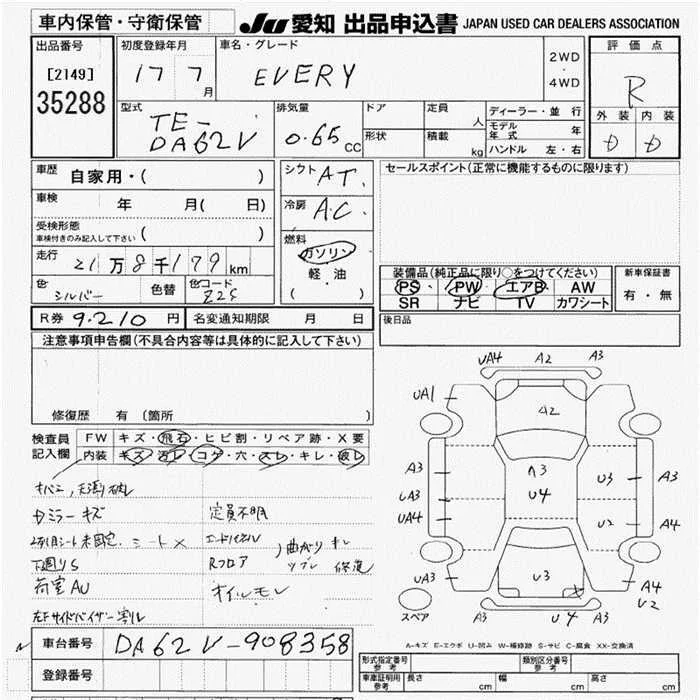 車内保管・守衛保管
JU 愛知 出品申込書 JAPAN USED CAR DEALERS ASSOCIATION
出品番号
[2149]
35288
初度登録年月
17 7 月
車名・グレード
EVERY
2WD
・
4WD
評価点
R
外装 内装
D D
型式
TE-
DA62V
排気量
0.65 CC
ドア
形状
定員 人
積載 kg
ディーラー・並行
モデル年式 年
ハンドル 左・右
車歴
自家用・( )
車検 年 月( 日)
受検形態
車検付きのみ記入して下さい ( )
走行
21万8千179 km
色 シルバー 色替 色コード Z2S
シフト AT.
冷房 A.C.
燃料
ガソリン
軽・油
( )
セールスポイント(正常に機能するものに限ります)
装備品(純正品に限り○をつけてください)
PS PW エアB AW
SR ナビ TV カワシート
新車保証書
有・無
R券 9.210 円 名変通知期限 月 日
後日品
注意事項申告欄(不具合内容等は具体的に記入して下さい)
修復歴 有(箇所 )
検査員
記入欄
FW キズ・飛石・ヒビ割・リペア跡・X要
内装 キズ・汚レ・コゲ・穴・スレ・キレ・破レ
カミラーキズ 定員不明
シート×
下廻りS Rフロア 曲がり
荷室AU オイルモレ
左Fサイドバイザー割レ
UA4 A2 A3
UA1
A2
A3 A3
U4
U3 A3
UA3
UA4 U2 A4
UA3 U3 A4
U2
スペア
U4 A3
A-キズ E-エクボ U-凹み W-補修跡 S-サビ C-腐食 XX-交換済
車台番号 DA62V-908358
登録番号
形式指定番号 参考
類別区分番号 参考
車庫証明用 参考 長さ cm 幅 cm 高さ cm